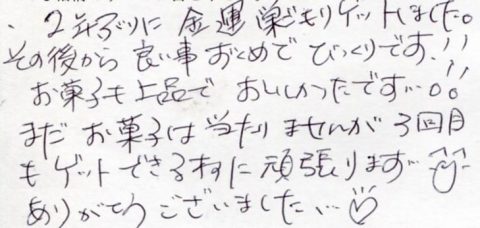 、2年ぶりに金運巣ごもりゲットしました。
その後から良い事おくめでびっくりです!!
お菓子も上品でおいしかったです…!!
まだお菓子は当たりませんが3回目
もゲットできる様に頑張ります…
ありがとうございました…♡